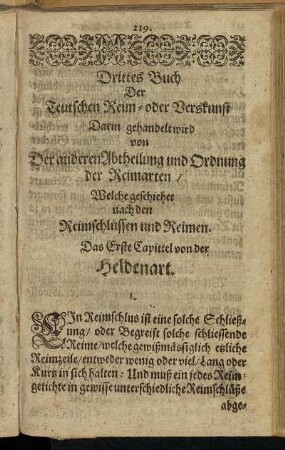 219.
Drittes Buch
Der
Teutschen Reim- oder Verskunst
Darin gehandelt wird
von
Der anderen Abtheilung und Ordnung
der Reimarten /
Welche geschiehet
nach den
Reimschlüssen und Reimen.
Das Erste Capittel von der
Heldenart.
I.
Ein Reimschlus ist eine solche Schließ-
ung / oder Begreift solche schliessende
Reime / welche gewißmässiglich etzliche
Reimzeile / entweder wenig oder viel / Lang oder
Kurtz in sich halten: Und muß ein jedes Reim-
getichte in gewisse unterschiedliche Reimschlüße
abge-